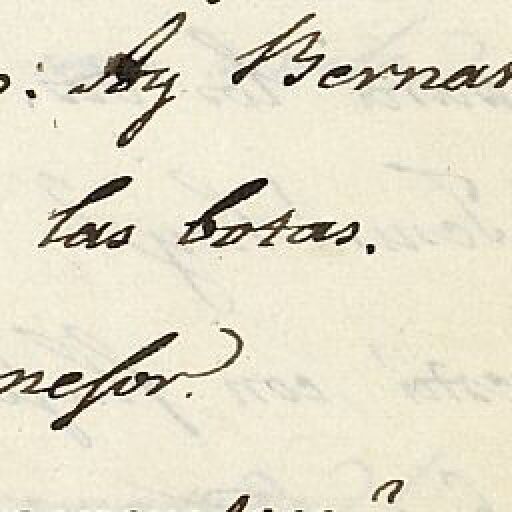 : Ay Bernar
las botas.
nesor.